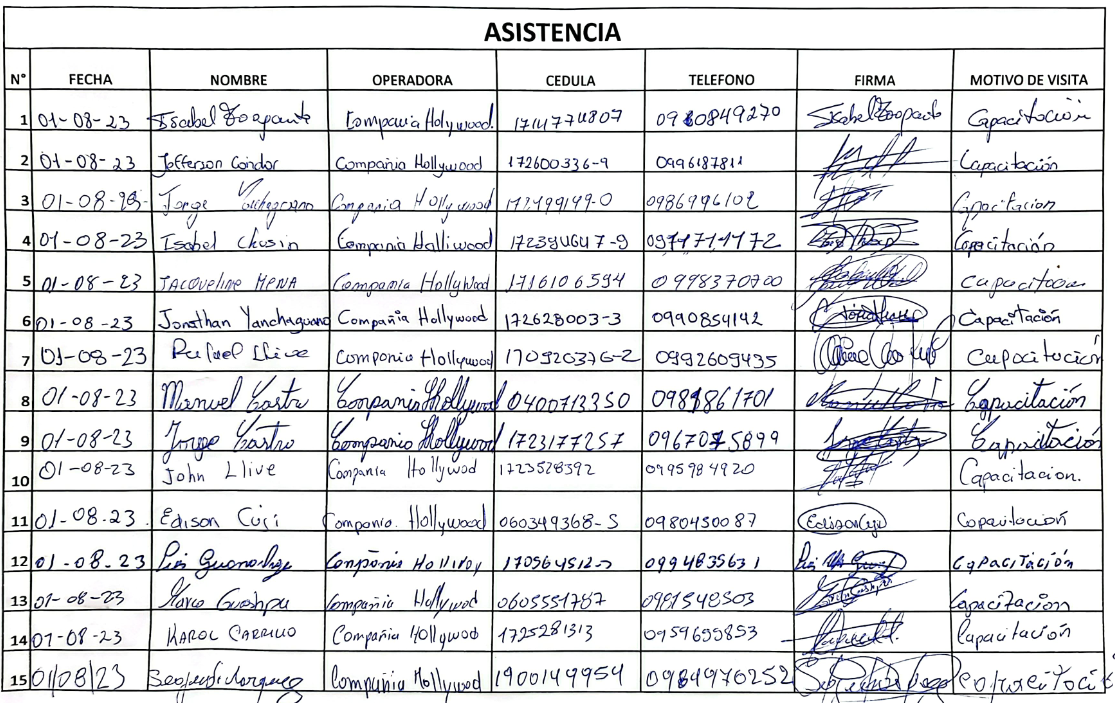 ASISTENCIA
N° FECHA NOMBRE OPERADORA CEDULA TELEFONO FIRMA MOTIVO DE VISITA
1 01-08-23 Isabel Toapanta Compania Holywood. 0980849270 Isabel Toapanta Capacitación
2 01-08-23 Jefferson Condor Compañia Hollywood 172600336-9 0996187811 Capacitación
3 01-08-23- Jorge Compania Hollywood 0986996102 Capacitacion
4 01-08-23 Isabel Chusin Compania Halliwood Capacitación
5 01-08-23 JACQUELINE MENA Compania Hollywood 1716106594 Capacitacion
6 01-08-23 Jonathan Yanchaguano Compañia Hollywood 172628003-3 0990854142 Capacitación
7 01-08-23 Rafael Llive Compania Hollywood 170520376-2 0992609435 Capacitación
8 01-08-23 Manuel Castro Compania Hollywood 0400713350 0981861701 Capacitación
9 01-08-23 Jorge Castro Compania Hollywood 1723177257 0967075899 Capacitación
10 01-08-23 John Llive Compania Hollywod 1723528392 0995984920 Capacitacion.
11 01-08.23. Edison Compania. Hollywood 060349368-5 0980450087 Capacitación
12 01-08.23 Compañia 0994835631 Capacitación
13 01-08-23 Marco Guashpa Compañia Hollywod 0605551787 0981548503 Capacitacion
14 01-08-23 KAROL CARRILLO Compañia Hollywod 1725281313 0959655853 Capacitación
15 01/08/23 Compania Hollywood 1900149954 0984976252